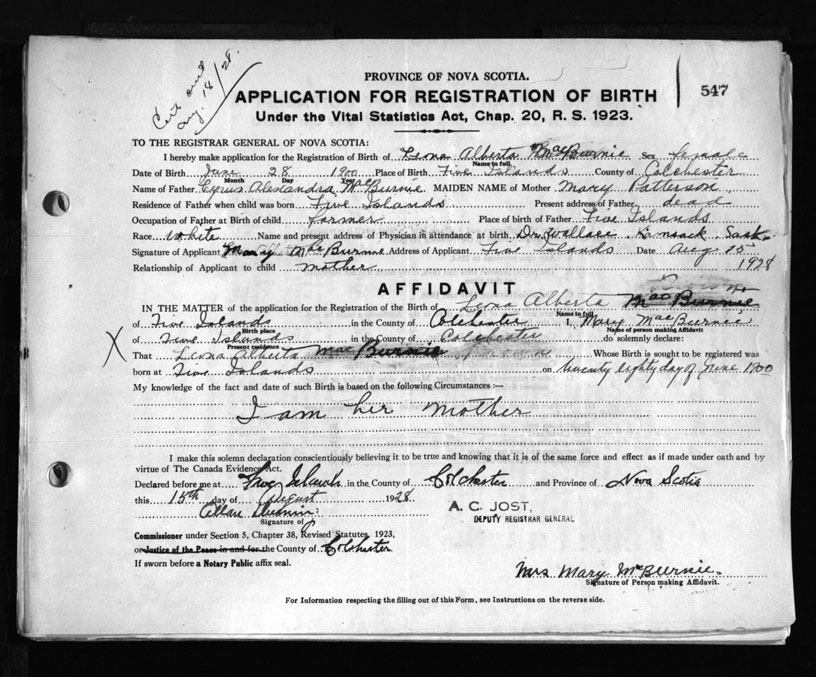 Cert out
Aug. 18/28.
547
PROVINCE OF NOVA SCOTIA.
APPLICATION FOR REGISTRATION OF BIRTH
Under the Vital Statistics Act, Chap. 20, R. S. 1923.
TO THE REGISTRAR GENERAL OF NOVA SCOTIA:
I hereby make application for the Registration of Birth of Leona Alberta MacBurnie Sex female
Name in full
Date of Birth June 28 1900 Place of Birth Five Islands County of Colchester
Month Day Year
Name of Father Cyrus Alexandra McBurnie MAIDEN NAME of Mother Mary Patterson
Residence of Father when child was born Five Islands Present address of Father dead
Occupation of Father at Birth of child farmer Place of birth of Father Five Islands
Race white Name and present address of Physician in attendance at birth Dr. Wallace Kamsack Sask.
Signature of Applicant Mary McBurnie Address of Applicant Five Islands Date Aug 15
Relationship of Applicant to child mother 1928
AFFIDAVIT
IN THE MATTER of the application for the Registration of the Birth of Leona Alberta MacBurnie
Name in full
of Five Islands in the County of Colchester I, Mary MacBurnie
Birth place Name of person making Affidavit
X of Five Islands in the County of Colchester do solemnly declare:
Present residence
That Leona Alberta MacBurnie Whose Birth is sought to be registered was
born at Five Islands on twenty eighty day of June 1900
My knowledge of the fact and date of such Birth is based on the following Circumstances :—
I am her mother
I make this solemn declaration conscientiously believing it to be true and knowing that it is of the same force and effect as if made under oath and by
virtue of The Canada Evidence Act.
Declared before me at Five Islands in the County of Colchester and Province of Nova Scotia
this 15th day of August 1928
A. C. JOST,
DEPUTY REGISTRAR GENERAL
Signature of
Commissioner under Section 5, Chapter 38, Revised Statutes, 1923,
or Justice of the Peace in and for the County of Colchester
If sworn before a Notary Public affix seal.
Mrs Mary McBurnie
Signature of Person making Affidavit.
For Information respecting the filling out of this Form, see Instructions on the reverse side.